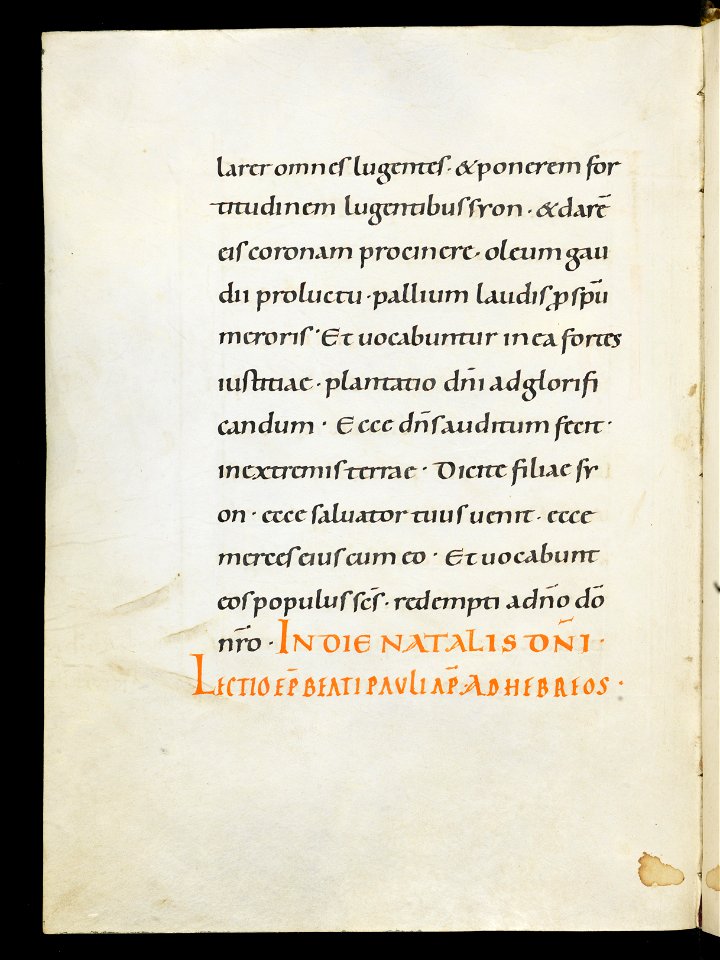 larer omnes lugentes · &ponerem for
titudinem lugentibus syon · &darē
eis coronam procinere · oleum gau
dii proluctu · pallium laudis ꝓ spū
meroris · Et uocabuntur inea fortes
iustitiae · plantatio dn̄i adglorifi
candum · Ecce dn̄s auditum fecit ·
inextremis terrae · Dicite filiae sy
on · ecce saluator tuus uenit · ecce
merces eius cum eo · Et uocabunt
eos populus sc̄s · redempti adn̄o dō
nr̄o · IN DIE NATALIS DN̄I ·
LECTIO EP̄ BEATI PAULI AP̄ · AD HEBREOS ·